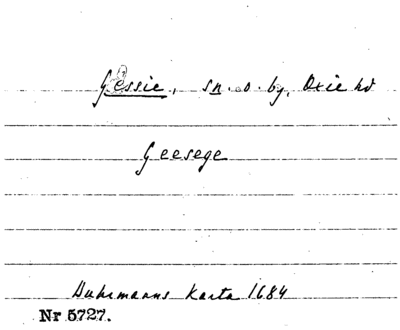 Gessie, sn. o. by, Oxie hd
Geesege
Buhrmanns Karta 1684
Nr 5727.